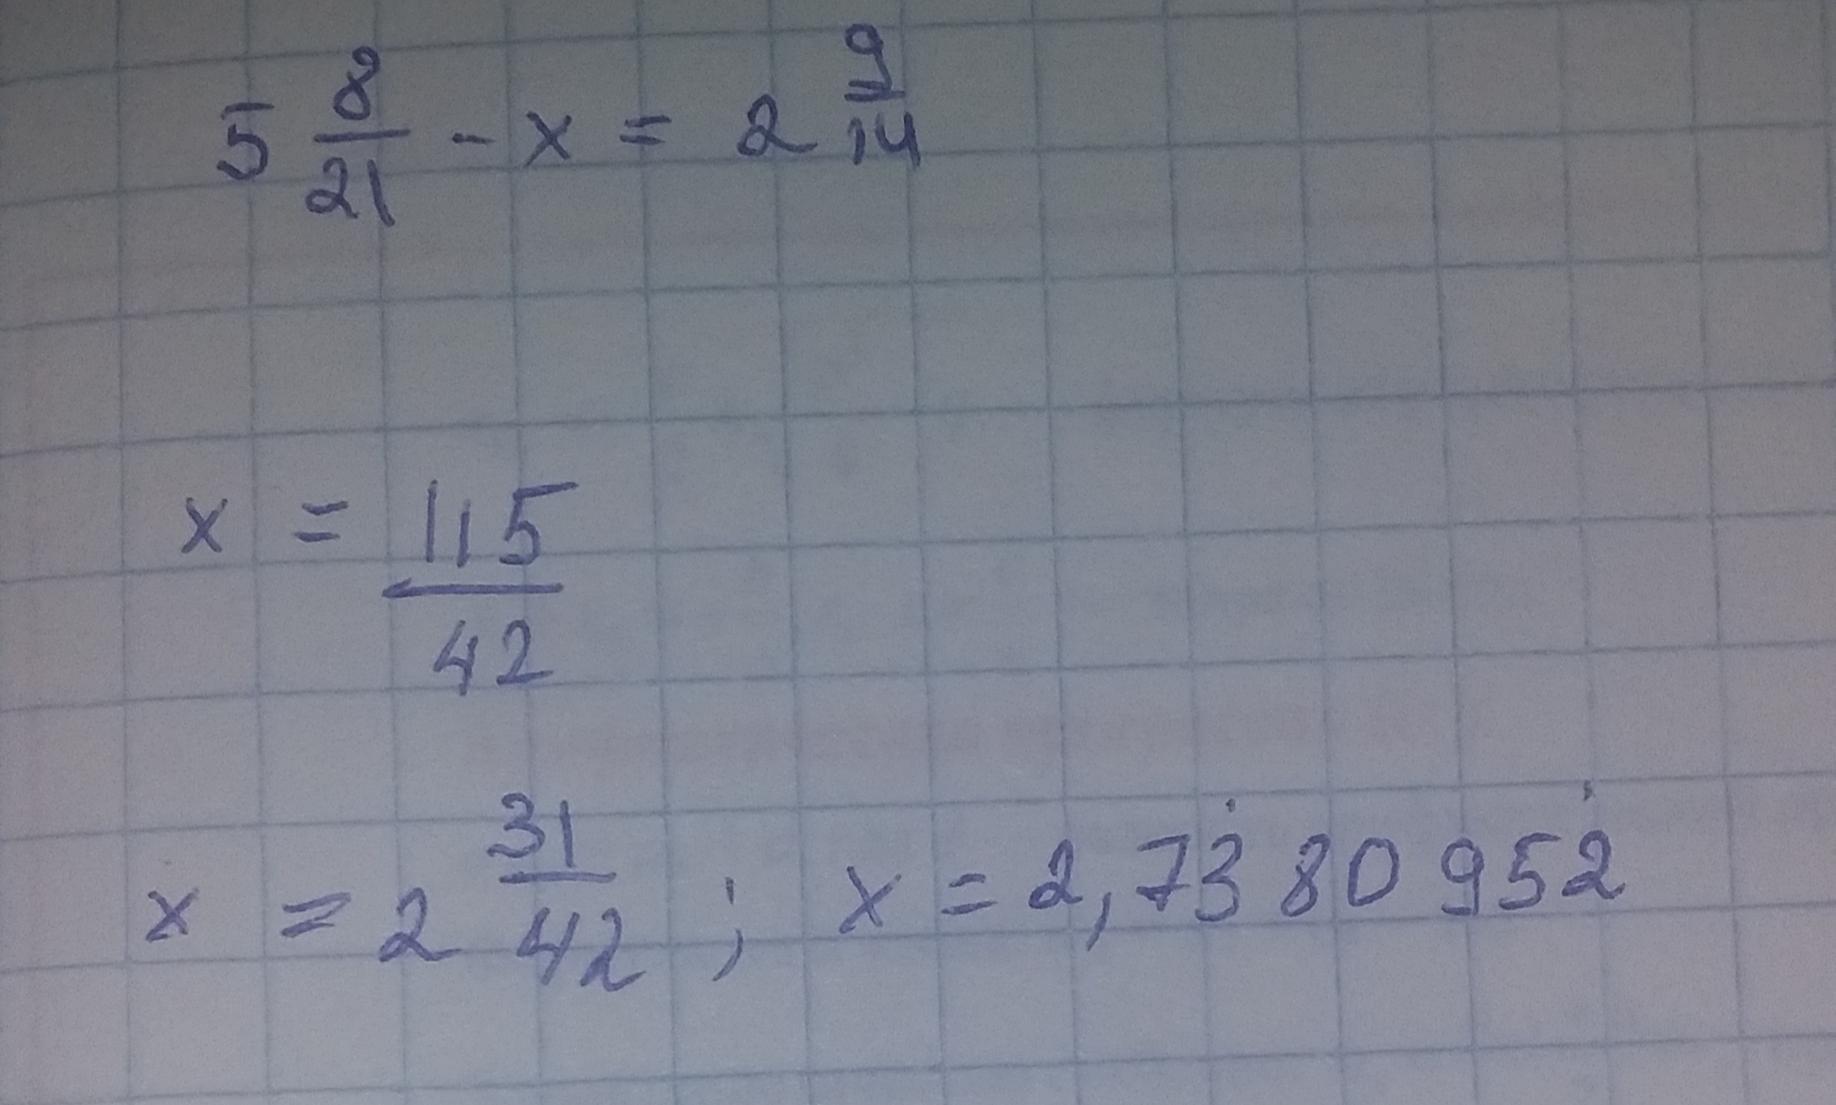 5 8/21 - x = 2 9/14
x = 115/42
x = 2 31/42 ; x = 2,73̇80952̇